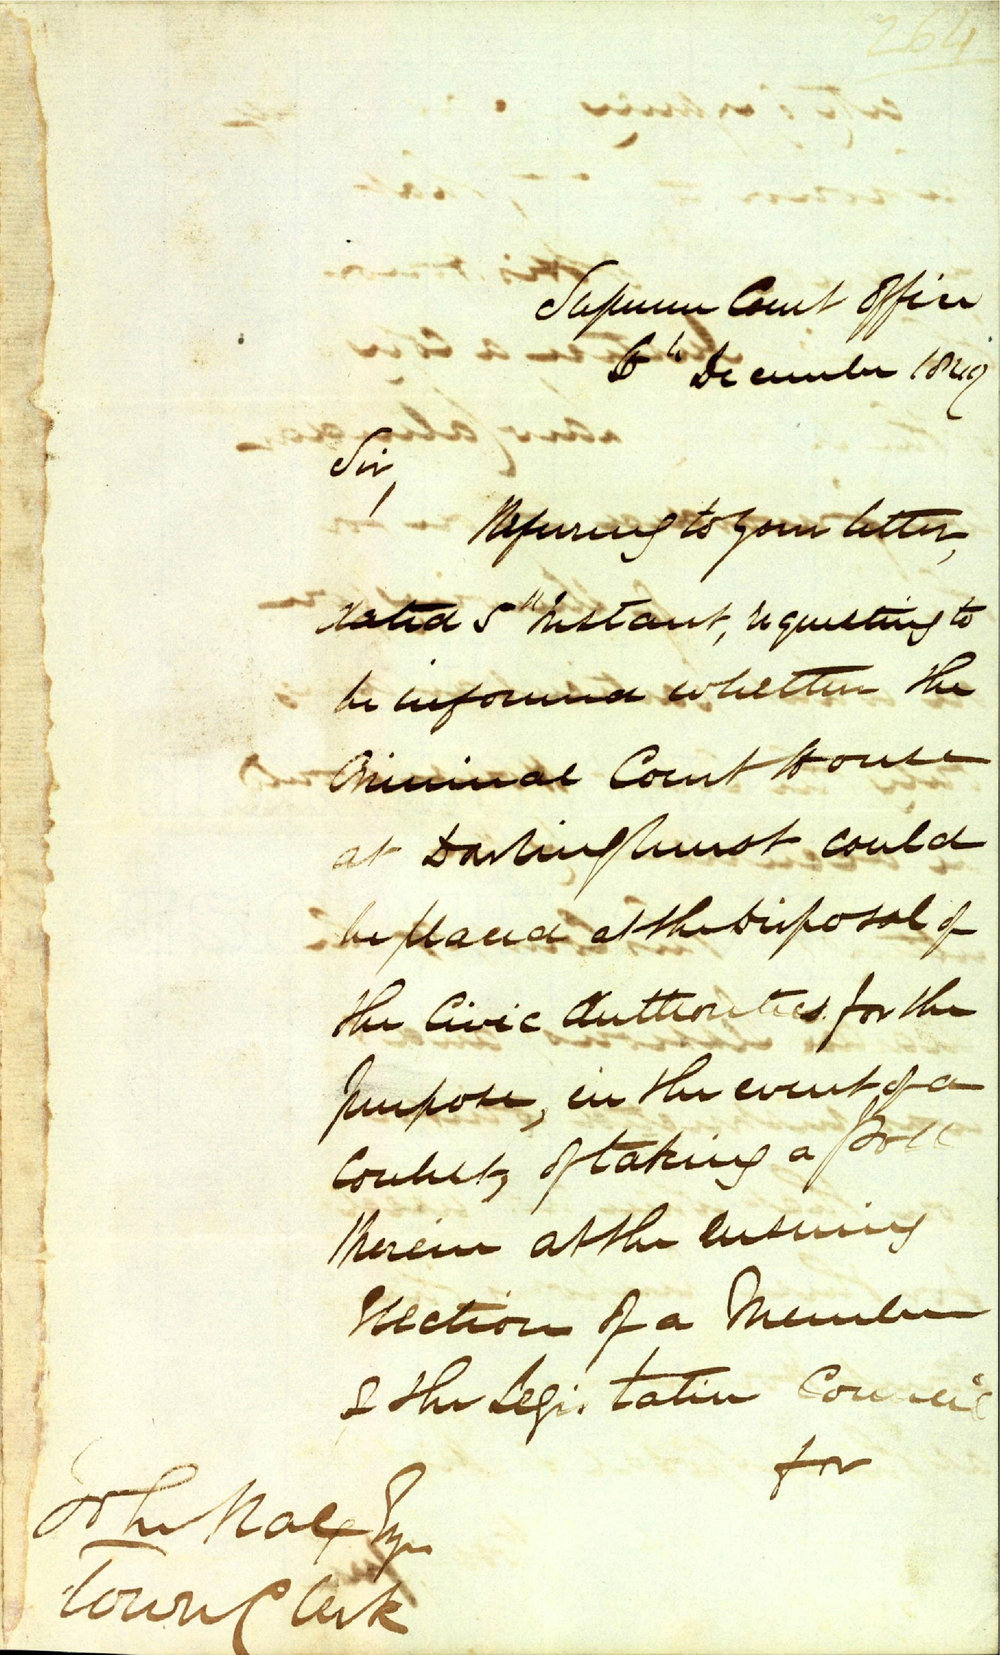 264
Supreme Court Office
6th December 1849
Sir,
Referring to your letter,
dated 5th Instant, requesting to
be informed whether the
Criminal Court House
at Darlinghurst could
be placed at the disposal of
the Civic Authorities for the
purpose, in the event of a
Contest, of taking a Poll
therein at the ensuing
Election of a Member
of the Legislative Council
for
John Rae Esqr
Town Clerk